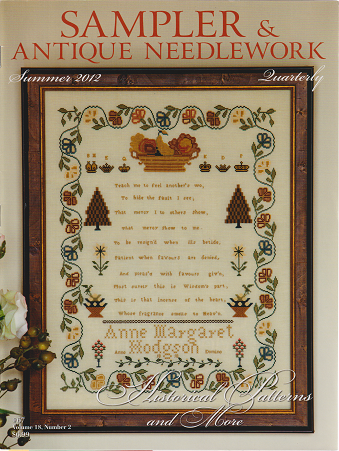 SAMPLER &
ANTIQUE NEEDLEWORK
Summer 2012 Quarterly
Teach me to feel another's woe,
To hide the fault I see,
That mercy I to others show,
that mercy show to me.
To be resign'd when ills betide,
Patient when favours are denied,
And pleas'd with favours giv'n,
Most surely this is Wisdom's part,
This is that incense of the heart,
Whose fragrance smells to Heav'n.
Anne Margaret
Hodgson
Historical Patterns
and More
Volume 18, Number 2
$6.99